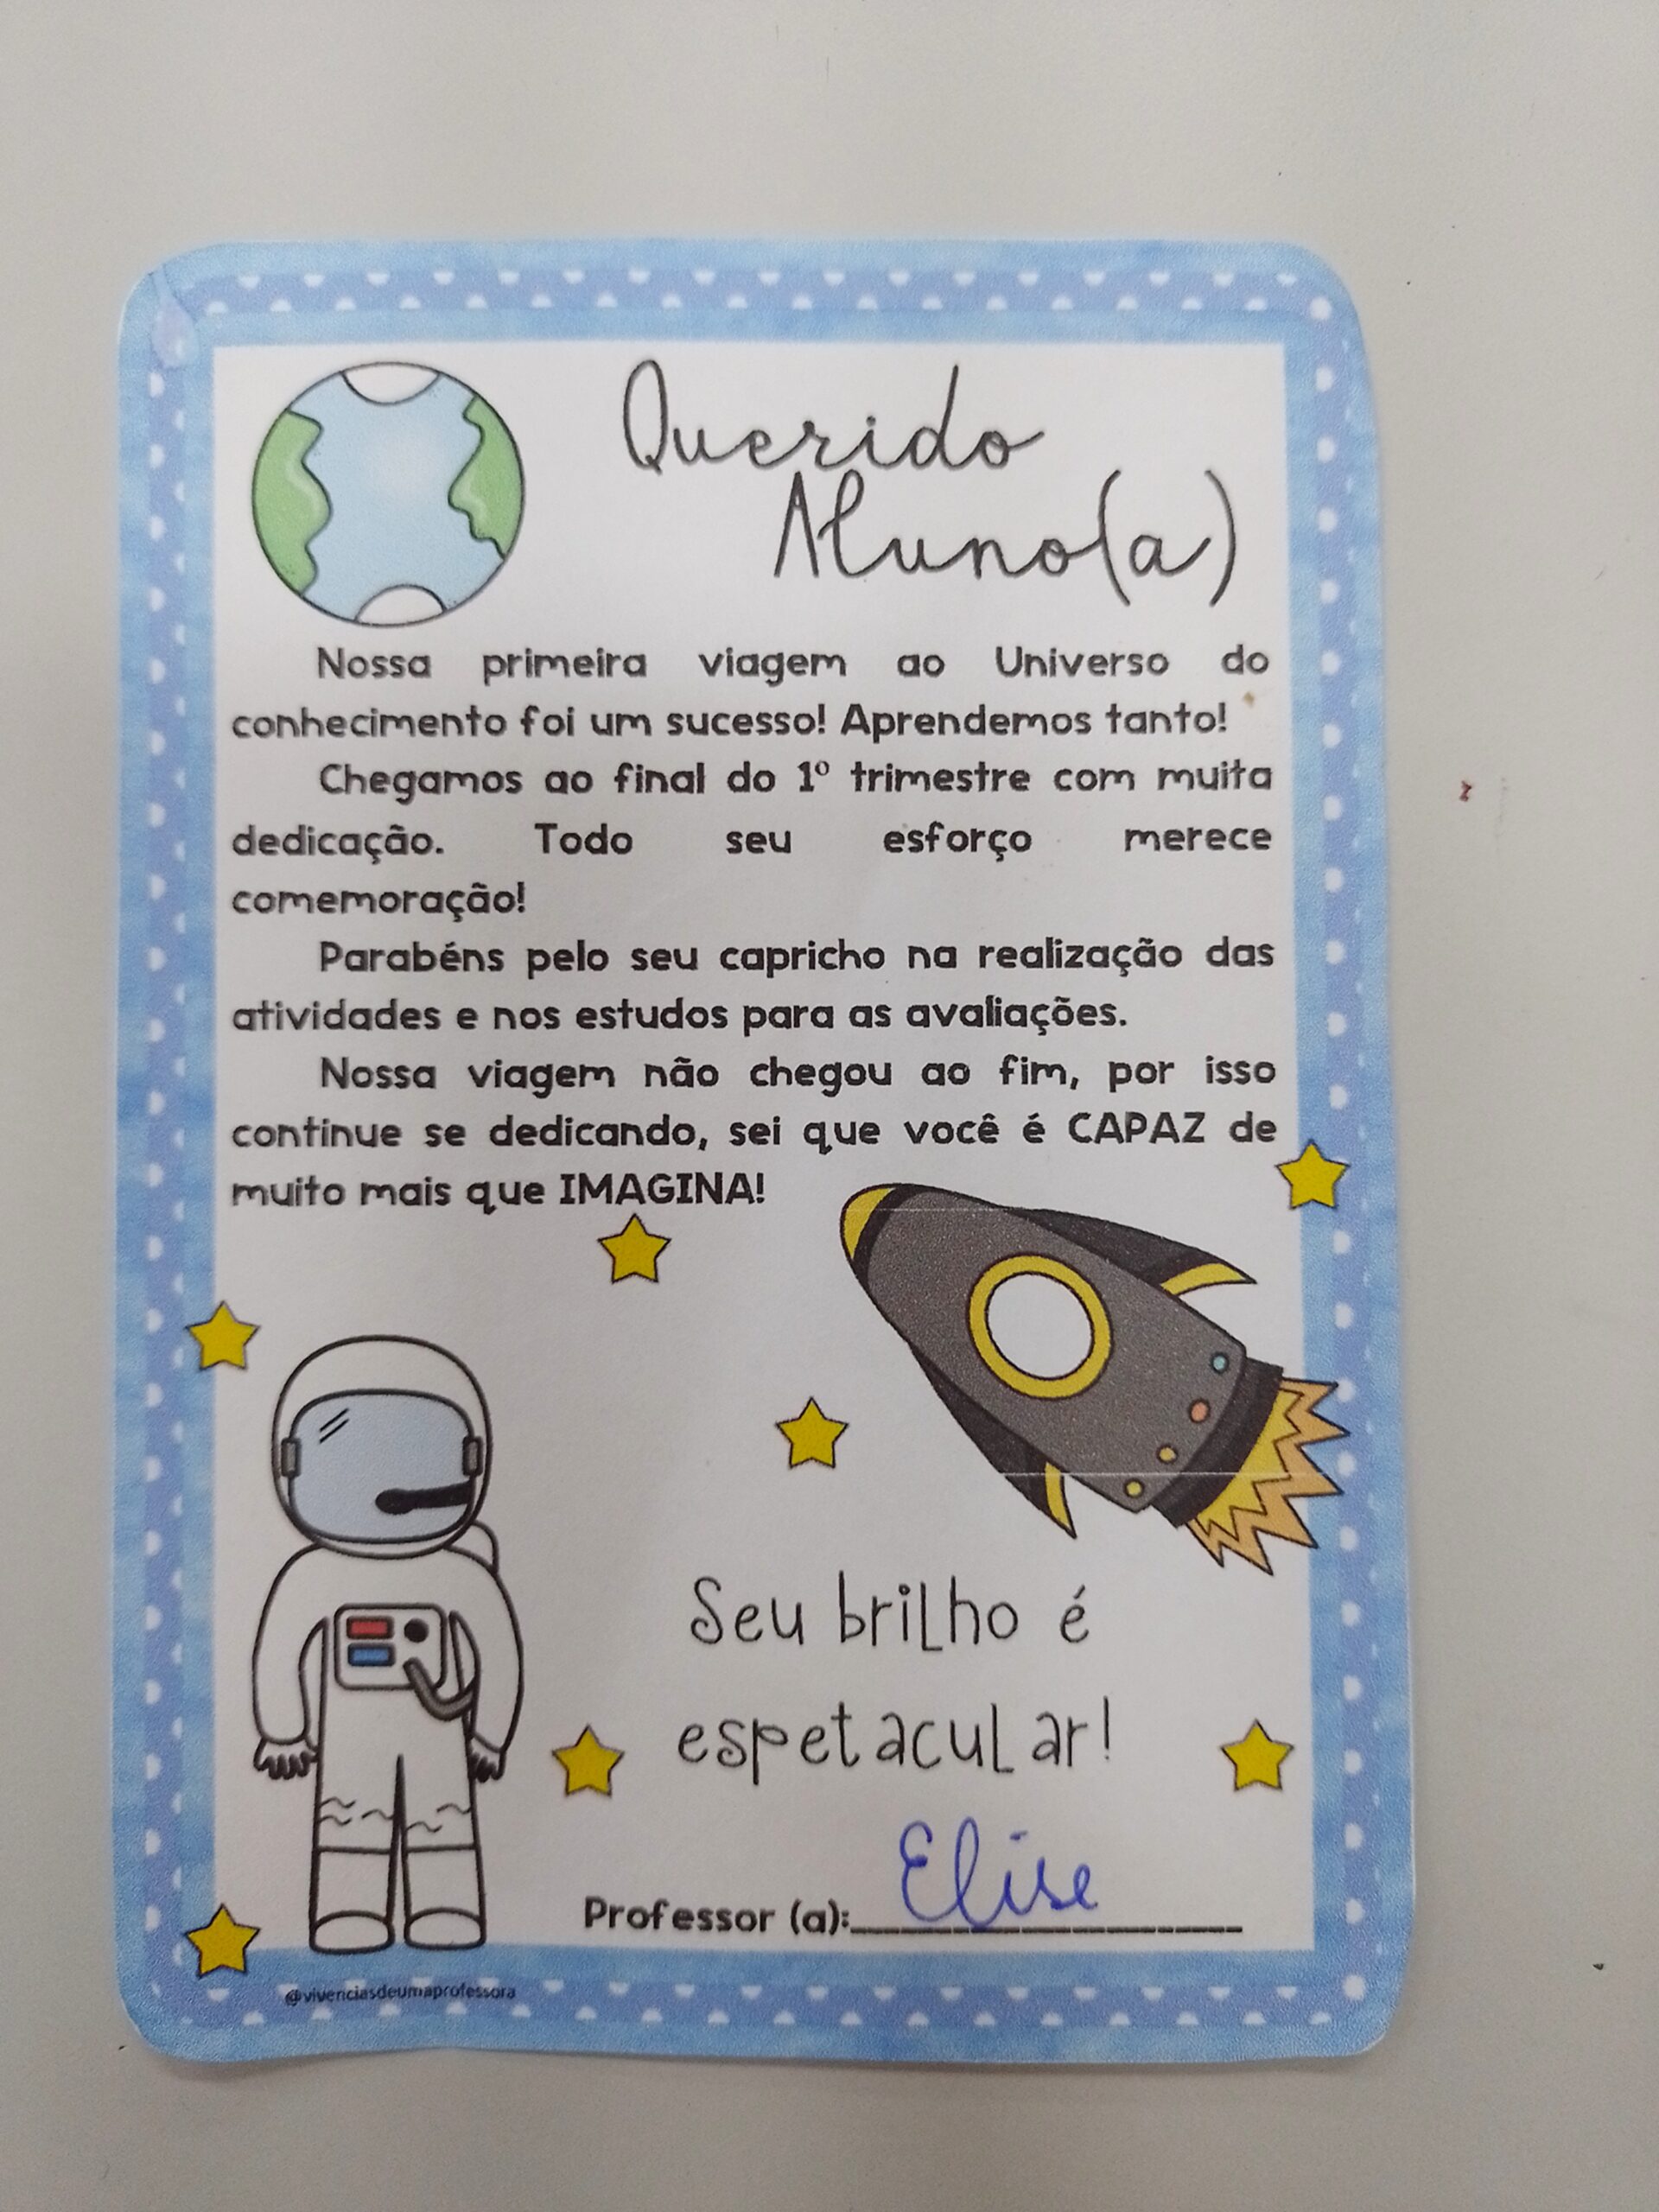 Querido
Aluno(a)
Nossa primeira viagem ao Universo do
conhecimento foi um sucesso! Aprendemos tanto!
Chegamos ao final do 1º trimestre com muita
dedicação. Todo seu esforço merece
comemoração!
Parabéns pelo seu capricho na realização das
atividades e nos estudos para as avaliações.
Nossa viagem não chegou ao fim, por isso
continue se dedicando, sei que você é CAPAZ de
muito mais que IMAGINA!
Seu brilho é
espetacular!
Professor (a): Elise
@vivenciasdeumaprofessora